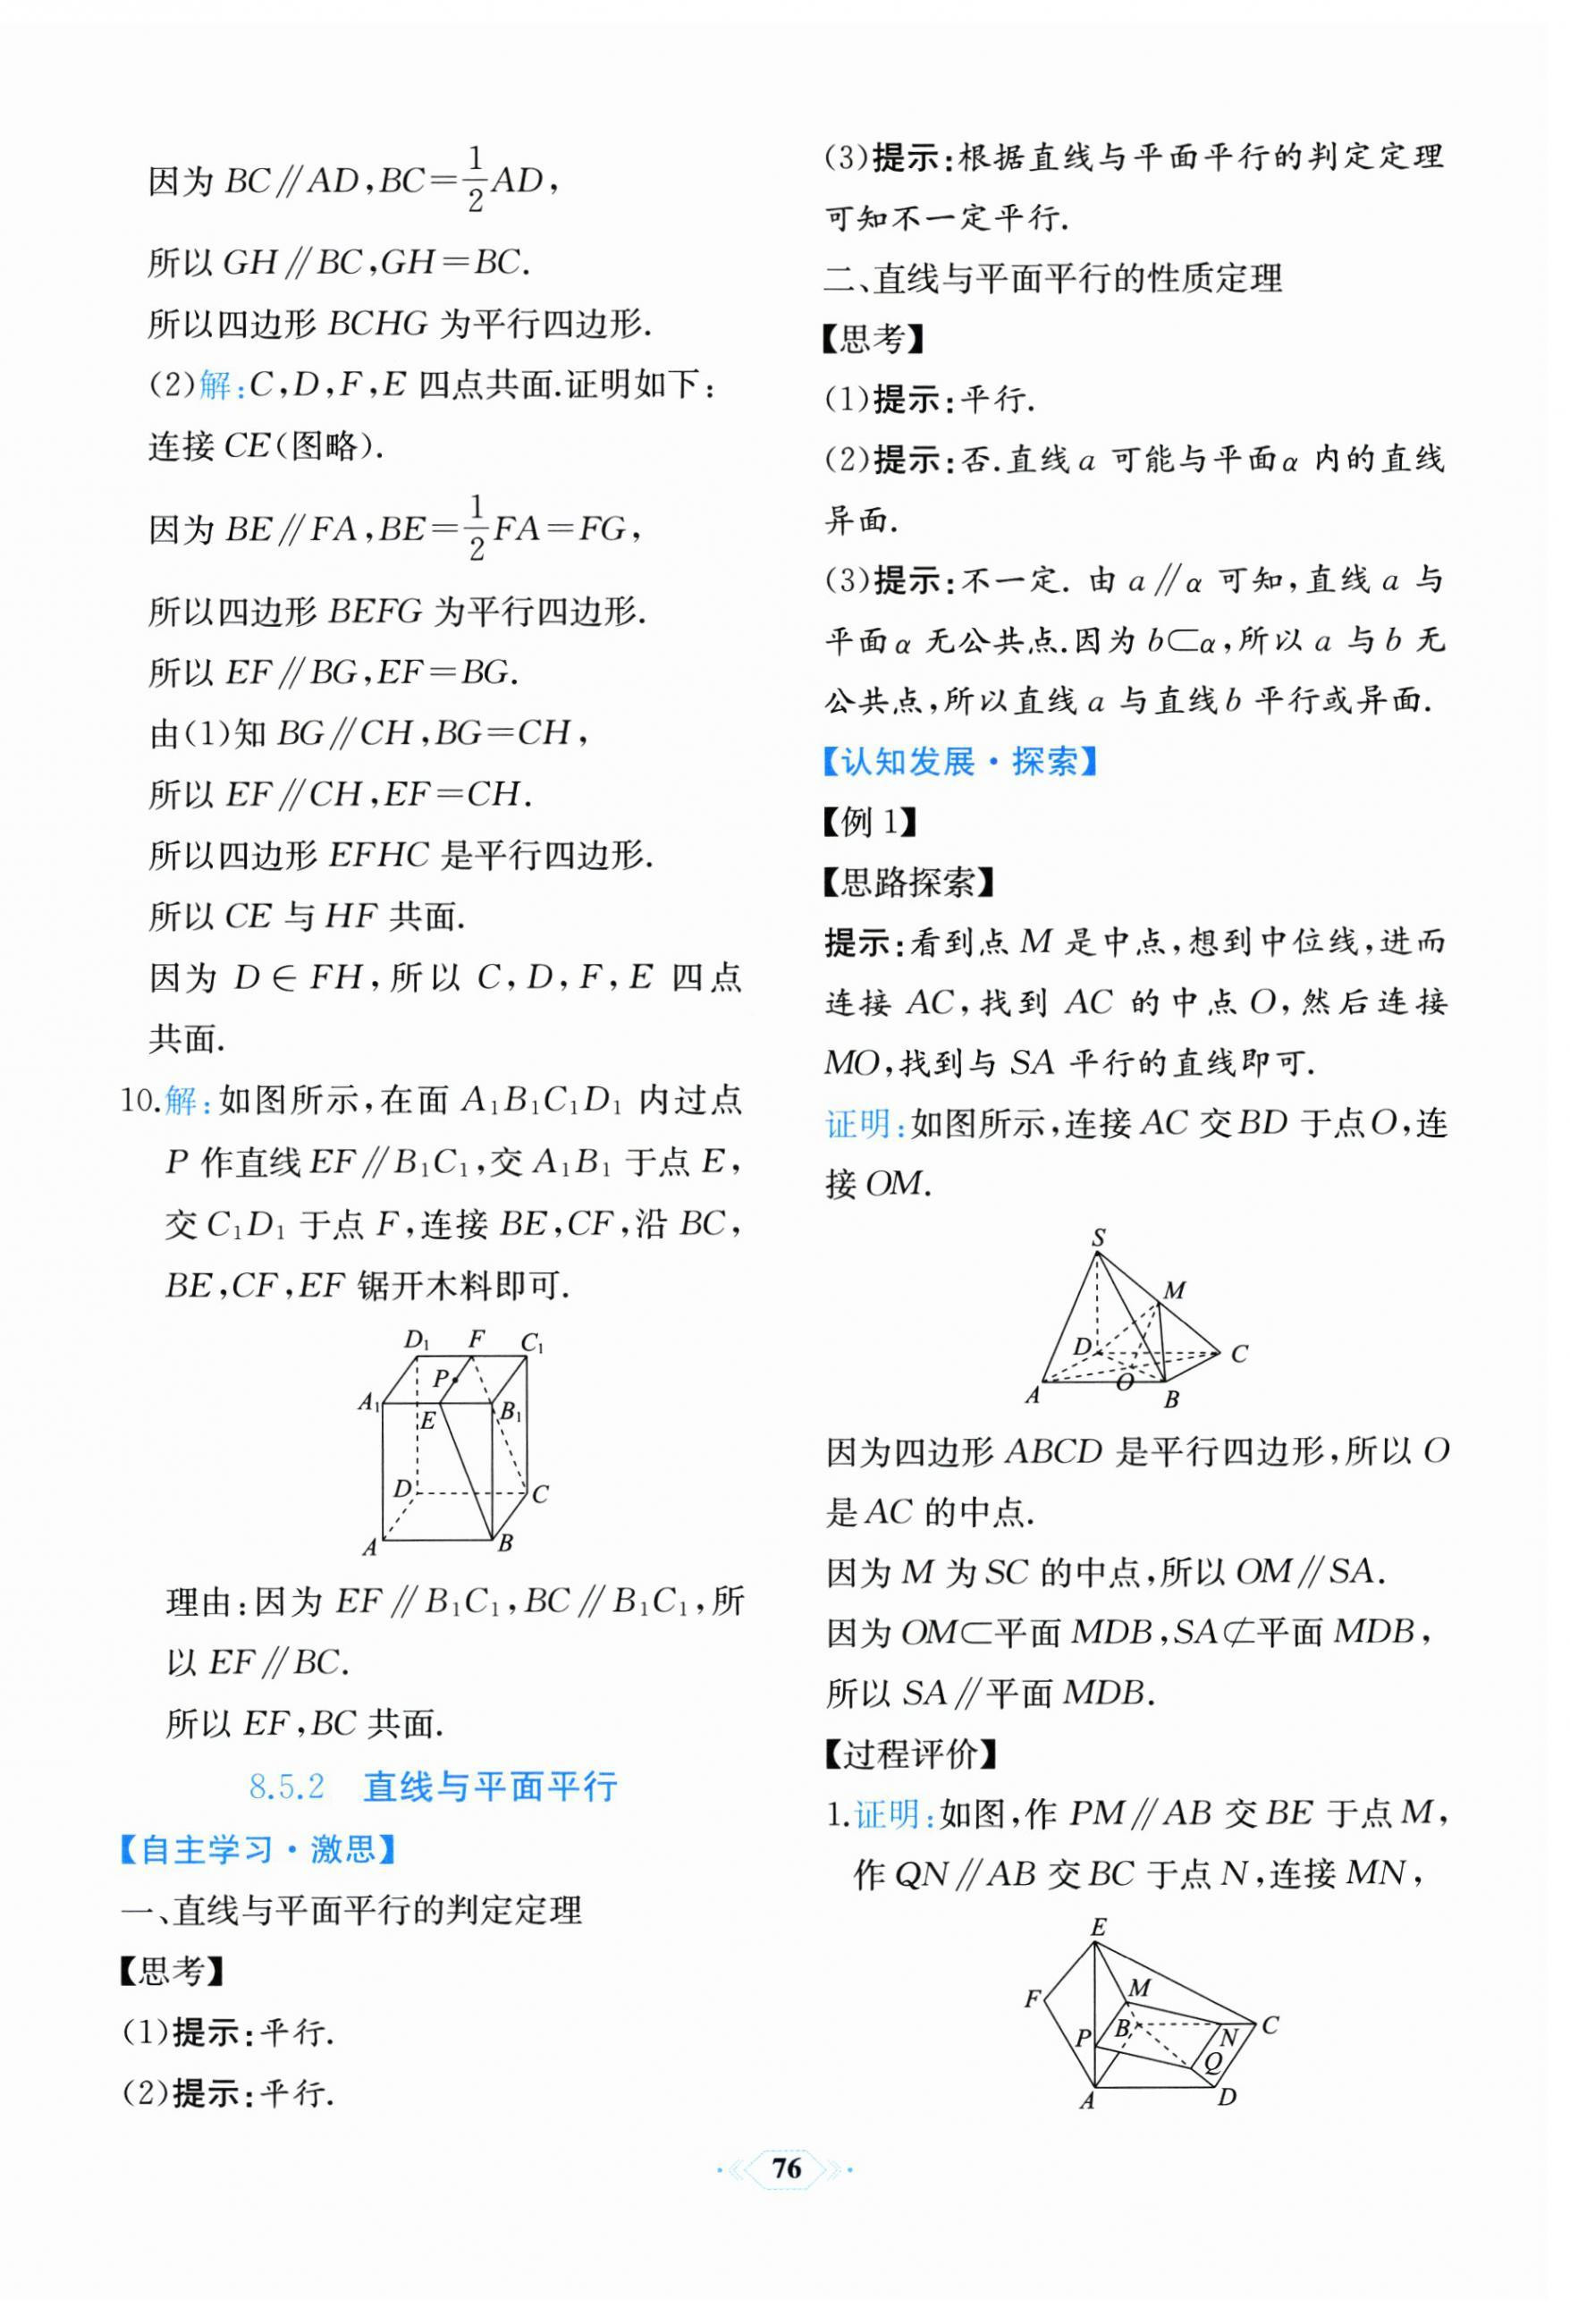 因为 BC∥AD,BC=\frac{1}{2}AD,
所以 GH∥BC,GH=BC.
所以四边形 BCHG 为平行四边形.
(2)解:C,D,F,E 四点共面.证明如下:
连接 CE(图略).
因为 BE∥FA,BE=\frac{1}{2}FA=FG,
所以四边形 BEFG 为平行四边形.
所以 EF∥BG,EF=BG.
由(1)知 BG∥CH,BG=CH,
所以 EF∥CH,EF=CH.
所以四边形 EFHC 是平行四边形.
所以 CE 与 HF 共面.
因为 D∈FH,所以 C,D,F,E 四点
共面.
10.解:如图所示,在面 A₁B₁C₁D₁ 内过点
P 作直线 EF∥B₁C₁,交 A₁B₁ 于点 E,
交 C₁D₁ 于点 F,连接 BE,CF,沿 BC,
BE,CF,EF 锯开木料即可.
D₁ F C₁
P
A₁ E B₁
D C
A B
理由:因为 EF∥B₁C₁,BC∥B₁C₁,所
以 EF∥BC.
所以 EF,BC 共面.
8.5.2 直线与平面平行
【自主学习·激思】
一、直线与平面平行的判定定理
【思考】
(1)提示:平行.
(2)提示:平行.
(3)提示:根据直线与平面平行的判定定理
可知不一定平行.
二、直线与平面平行的性质定理
【思考】
(1)提示:平行.
(2)提示:否.直线 a 可能与平面 α 内的直线
异面.
(3)提示:不一定. 由 a∥α 可知,直线 a 与
平面 α 无公共点.因为 b⊂α,所以 a 与 b 无
公共点,所以直线 a 与直线 b 平行或异面.
【认知发展·探索】
【例 1】
【思路探索】
提示:看到点 M 是中点,想到中位线,进而
连接 AC,找到 AC 的中点 O,然后连接
MO,找到与 SA 平行的直线即可.
证明:如图所示,连接 AC 交 BD 于点 O,连
接 OM.
S
M
D C
A O B
因为四边形 ABCD 是平行四边形,所以 O
是 AC 的中点.
因为 M 为 SC 的中点,所以 OM∥SA.
因为 OM⊂平面 MDB,SA⊄平面 MDB,
所以 SA∥平面 MDB.
【过程评价】
1.证明:如图,作 PM∥AB 交 BE 于点 M,
作 QN∥AB 交 BC 于点 N,连接 MN,
E
F M
P B N C
Q
A D
76